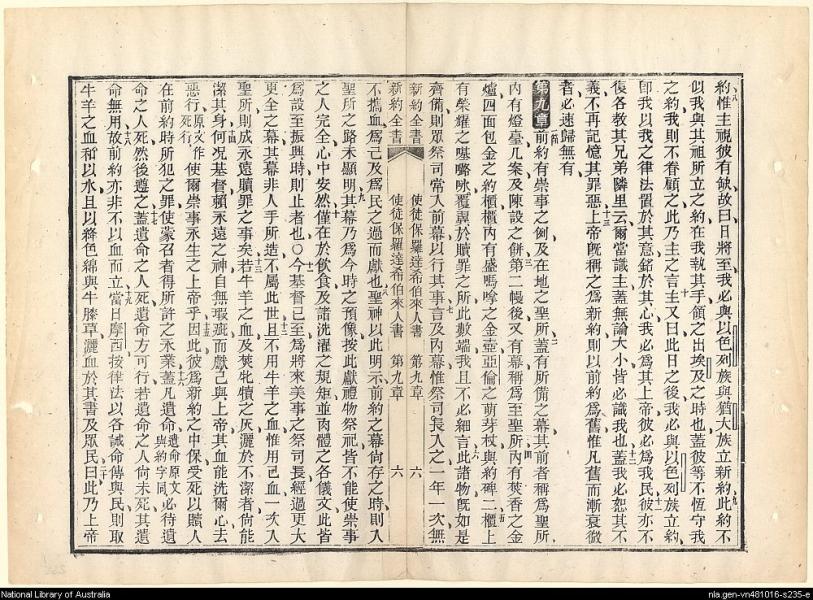 約惟主視彼有缺故曰日將至我必與以色列族與猶大族立新約此約不
似我與其祖所立之約在我執其手領之出埃及之時也蓋彼等不恆守我
之約我則不眷顧之此乃主之言主又曰此日之後我必與以色列族立約
卽我以我之律法置於其意銘於其心我必爲其上帝彼必爲我民彼亦不
復各教其兄弟隣里云爾當識主蓋無論大小皆必識我也蓋我必恕其不
義不再記憶其罪惡上帝旣稱之爲新約則以前約爲舊惟凡舊而漸衰微
者必速歸無有
第九章 前約有崇事之例及在地之聖所蓋有所備之幕其前者稱爲聖所
內有燈臺几案及陳設之餅第二幔後又有幕稱爲至聖所內有焚香之金
爐四面包金之約櫃櫃內有盛嗎嗱之金壺亞倫之萌芽杖與約碑二櫃上
有榮耀之𠼻㘔咏覆翼於贖罪之所此數端我且不必細言此諸物旣如是
齊備則眾祭司常入前幕以行其事言及內幕惟祭司長入之一年一次無
新約全書 使徒保羅達希伯來人書 第九章 六
新約全書 使徒保羅達希伯來人書 第九章 六
不攜血爲己及爲民之過而獻也聖神以此明示前約之幕尙存之時則入
聖所之路未顯明其幕乃爲今時之預像按此獻禮物祭祀皆不能使崇事
之人完全心中安然僅在於飲食及諸洗濯之規矩並肉體之各儀文此皆
爲設至振興時則止者也○今基督已至爲將來美事之祭司長經過更大
更全之幕其幕非人手所造不屬此世且不用牛羊之血惟用己血一次入
聖所則成永遠贖罪之事矣若牛羊之血及焚牝犢之灰灑於不潔者尙能
潔其身何况基督賴永遠之神自無瑕疵而獻己與上帝其血能洗爾心去
惡行原文作死行使爾崇事永生之上帝乎因此彼爲新約之中保受死以贖人
在前約時所犯之罪使蒙召者得所許之永業蓋凡遺命遺命原文與約字同必待遺
命之人死然後遵之蓋遺命之人死遺命方可行若遺命之人尙未死其遺
命無用故前約亦非不以血而立當日摩西按律法以各誡命傳與民則取
牛羊之血和以水且以絳色綿與牛膝草灑血於其書及眾民曰此乃上帝
National Library of Australia
nla.gen-vn481016-s235-e